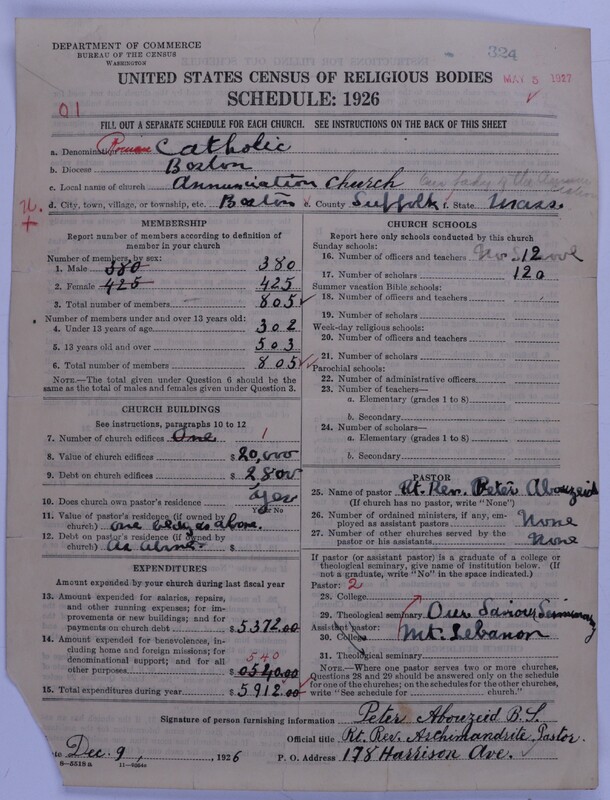 DEPARTMENT OF COMMERCE
BUREAU OF THE CENSUS
WASHINGTON
324
UNITED STATES CENSUS OF RELIGIOUS BODIES
MAY 5 1927
SCHEDULE: 1926
01
FILL OUT A SEPARATE SCHEDULE FOR EACH CHURCH. SEE INSTRUCTIONS ON THE BACK OF THIS SHEET
a. Denomination Roman Catholic
b. Diocese Boston
c. Local name of church Annunciation Church Our Lady of the
d. City, town, village, or township, etc. Boston e. County Suffolk f. State Mass.
MEMBERSHIP
Report number of members according to definition of member in your church
Number of members by sex:
1. Male 380 380
2. Female 425 425
3. Total number of members 805
Number of members under and over 13 years old:
4. Under 13 years of age 302
5. 13 years old and over 503
6. Total number of members 805
NOTE.—The total given under Question 6 should be the same as the total of males and females given under Question 3.
CHURCH BUILDINGS
See instructions, paragraphs 10 to 12
7. Number of church edifices One 1
8. Value of church edifices $ 20,000
9. Debt on church edifices $ 2800
10. Does church own pastor's residence Yes
Yes or No
11. Value of pastor's residence (if owned by church) one bldg as above.
12. Debt on pastor's residence (if owned by church) as above $
EXPENDITURES
Amount expended by your church during last fiscal year
13. Amount expended for salaries, repairs, and other running expenses; for improvements or new buildings; and for payments on church debt $ 5372.00
14. Amount expended for benevolences, including home and foreign missions; for denominational support; and for all other purposes 540 $ 0540.00
15. Total expenditures during year $ 5912.00
CHURCH SCHOOLS
Report here only schools conducted by this church
Sunday schools:
16. Number of officers and teachers No School 12
17. Number of scholars 120
Summer vacation Bible schools:
18. Number of officers and teachers
19. Number of scholars
Week-day religious schools:
20. Number of officers and teachers
21. Number of scholars
Parochial schools:
22. Number of administrative officers
23. Number of teachers—
a. Elementary (grades 1 to 8)
b. Secondary
24. Number of scholars—
a. Elementary (grades 1 to 8)
b. Secondary
PASTOR
25. Name of pastor Rt. Rev. Peter Abouzeid
(If church has no pastor, write "None")
26. Number of ordained ministers, if any, employed as assistant pastors None
27. Number of other churches served by the pastor or his assistants None
If pastor (or assistant pastor) is a graduate of a college or theological seminary, give name of institution below. (If not a graduate, write "No" in the space indicated.)
Pastor: 2
28. College
29. Theological seminary Our Saviour Seminary
Assistant pastor:
30. College Mt. Lebanon
31. Theological seminary
NOTE.—Where one pastor serves two or more churches, Questions 28 and 29 should be answered only on the schedule for one of the churches; on the schedules for the other churches, write "See schedule for church."
Signature of person furnishing information Peter Abouzeid B.S.
Official title Rt. Rev. Archimandrite, Pastor.
Date Dec. 9, 1926
P. O. Address 178 Harrison Ave.
8—5518a